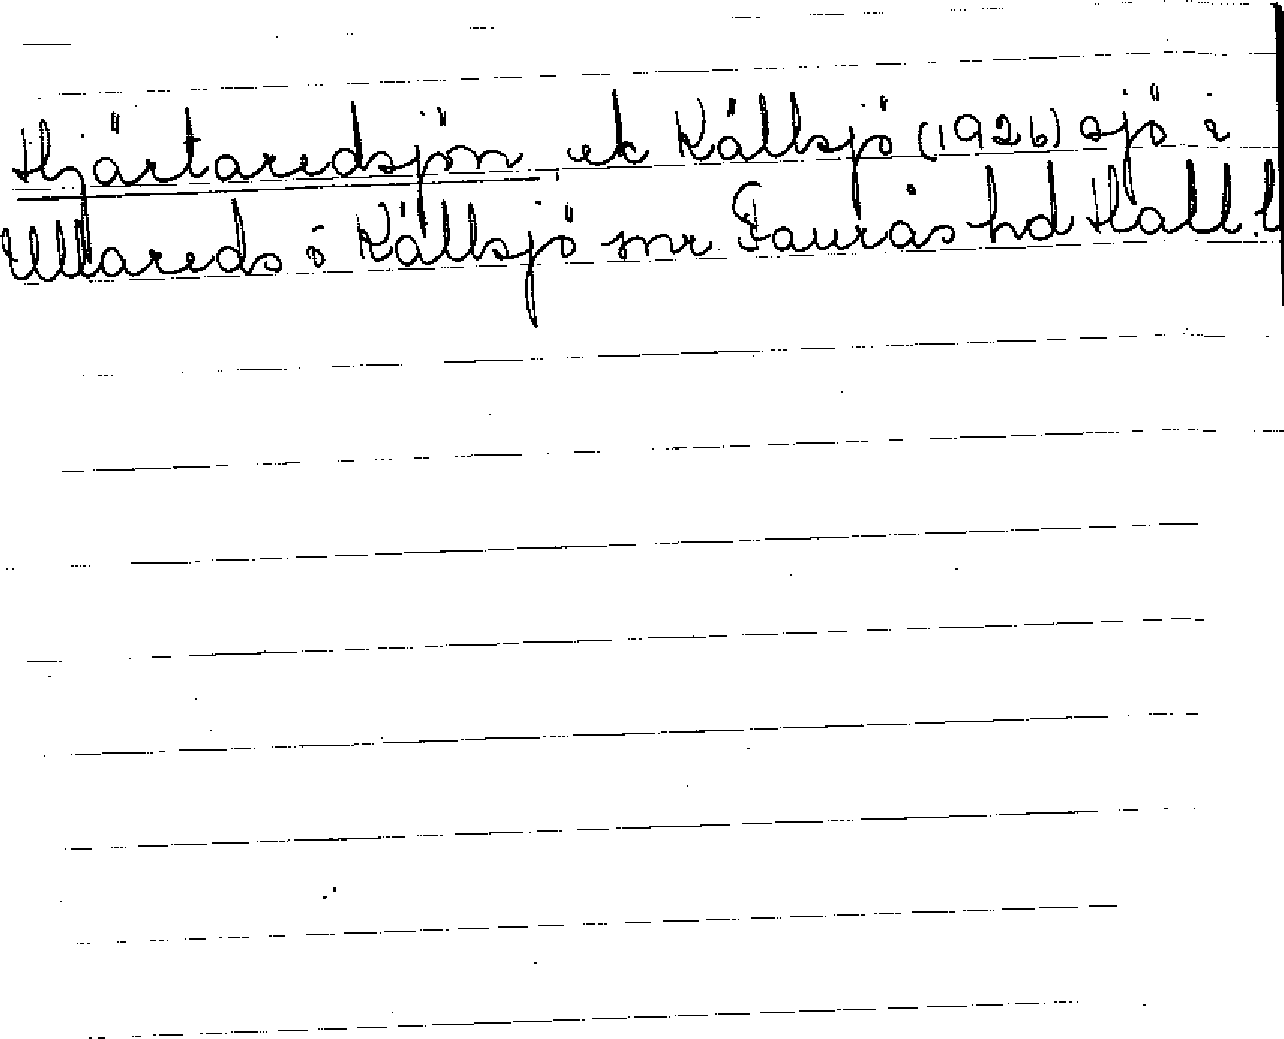 Hjärtaredsjön ek Källsjö (1926) sjö i
Ullareds o Källsjö snr Faurås hd Hall.l